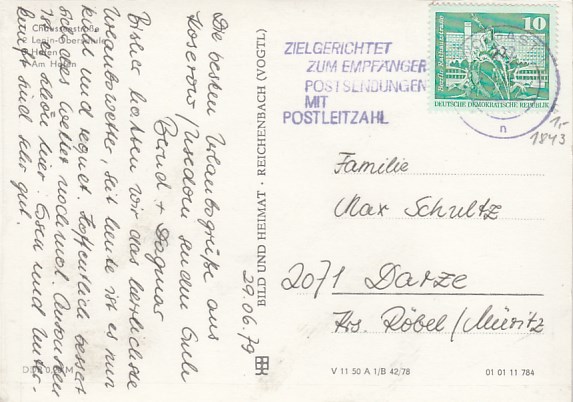 Die besten Urlaubsgrüße aus
Koserow/Usedom senden Euch
Bernd + Dagmar
Bisher hatten wir das herrlichste
Urlaubswetter, seit heute ist es nun
kühl und regnet. Hoffentlich bessert
sich das Wetter nochmal. Ansonsten
ist es schön hier. Essen und Unter-
kunft sind sehr gut.
29.06.79
Chausseestraße
Lenin-Oberschule
Hafen
Am Hafen
BILD UND HEIMAT · REICHENBACH (VOGTL)
ZIELGERICHTET
ZUM EMPFÄNGER
POSTSENDUNGEN
MIT
POSTLEITZAHL
10
Berlin Rathausstraße
DEUTSCHE DEMOKRATISCHE REPUBLIK
n
1,-
1843
Familie
Max Schultz
2071 Darze
Krs. Röbel/Müritz
V 11 50 A 1/B 42/78
01 01 11 784